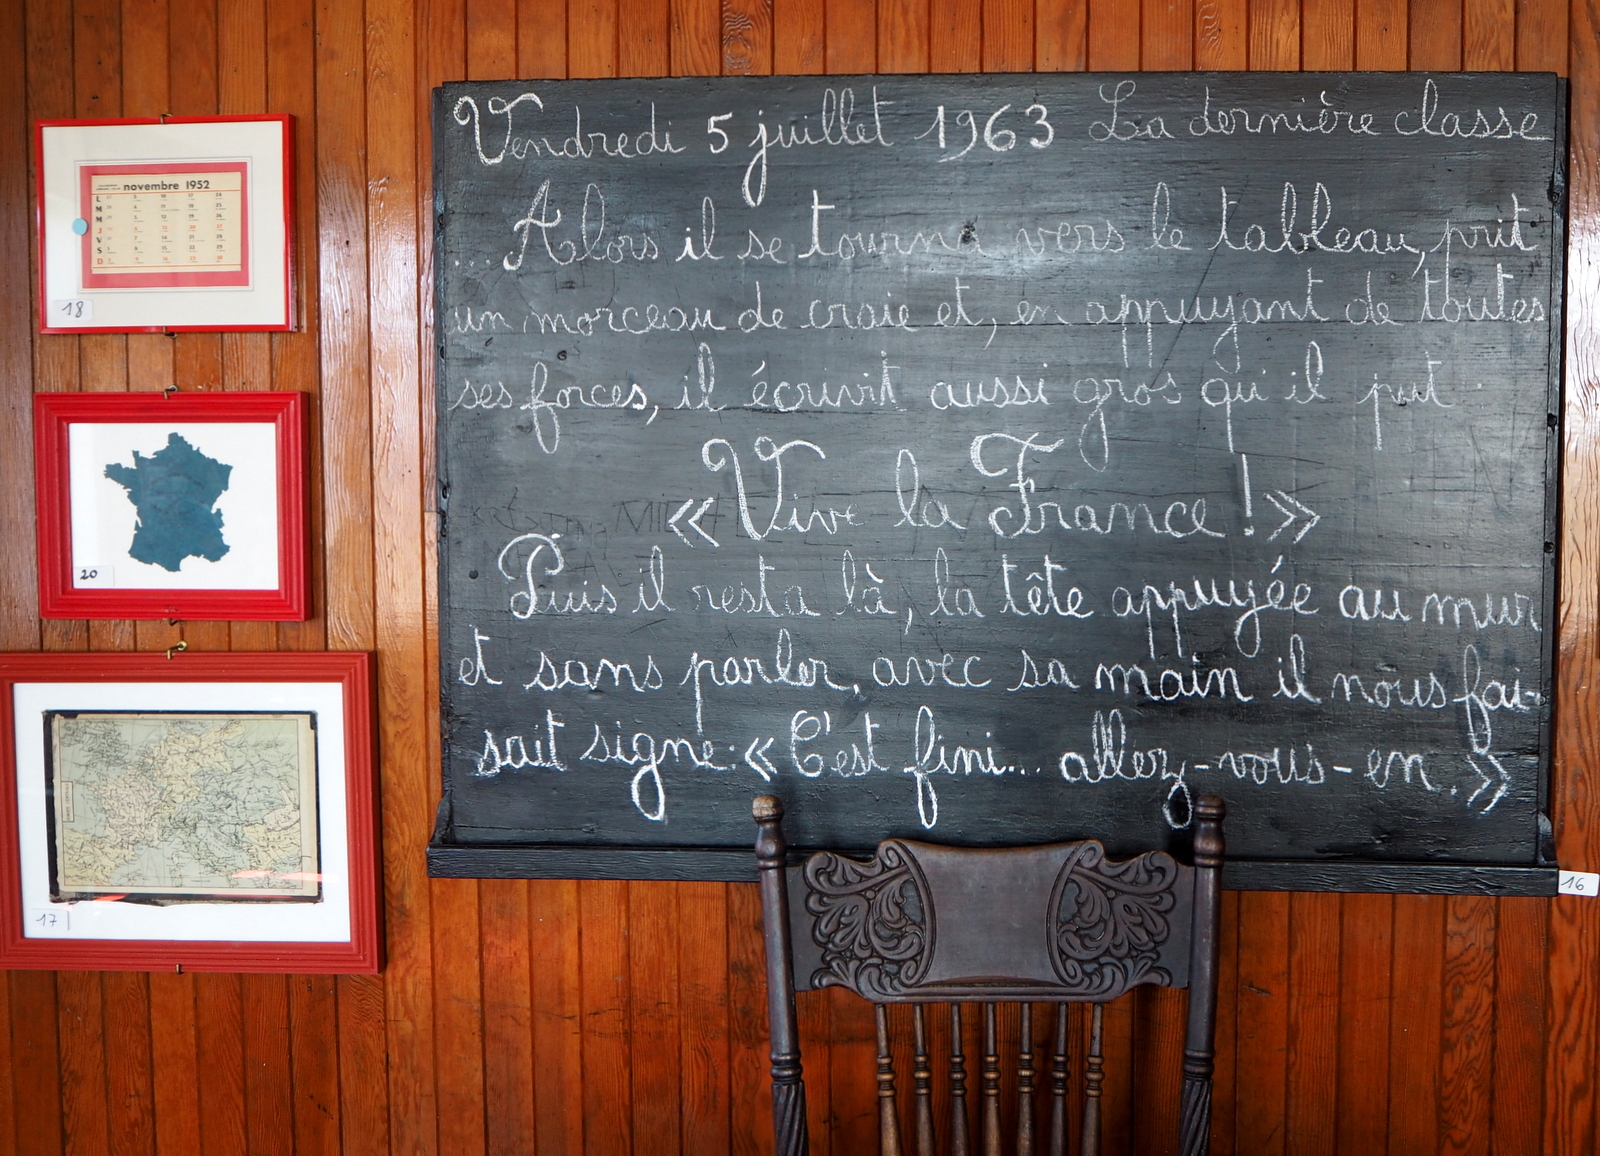 Vendredi 5 juillet 1963 La dernière classe
... Alors il se tourna vers le tableau, prit
un morceau de craie et, en appuyant de toutes
ses forces, il écrivit aussi gros qu'il put
« Vive la France ! »
Puis il resta là, la tête appuyée au mur
et sans parler, avec sa main il nous fai-
sait signe : « C'est fini... allez-vous-en. »
novembre 1952
L
M
M
J
V
S
D
18
20
17
16